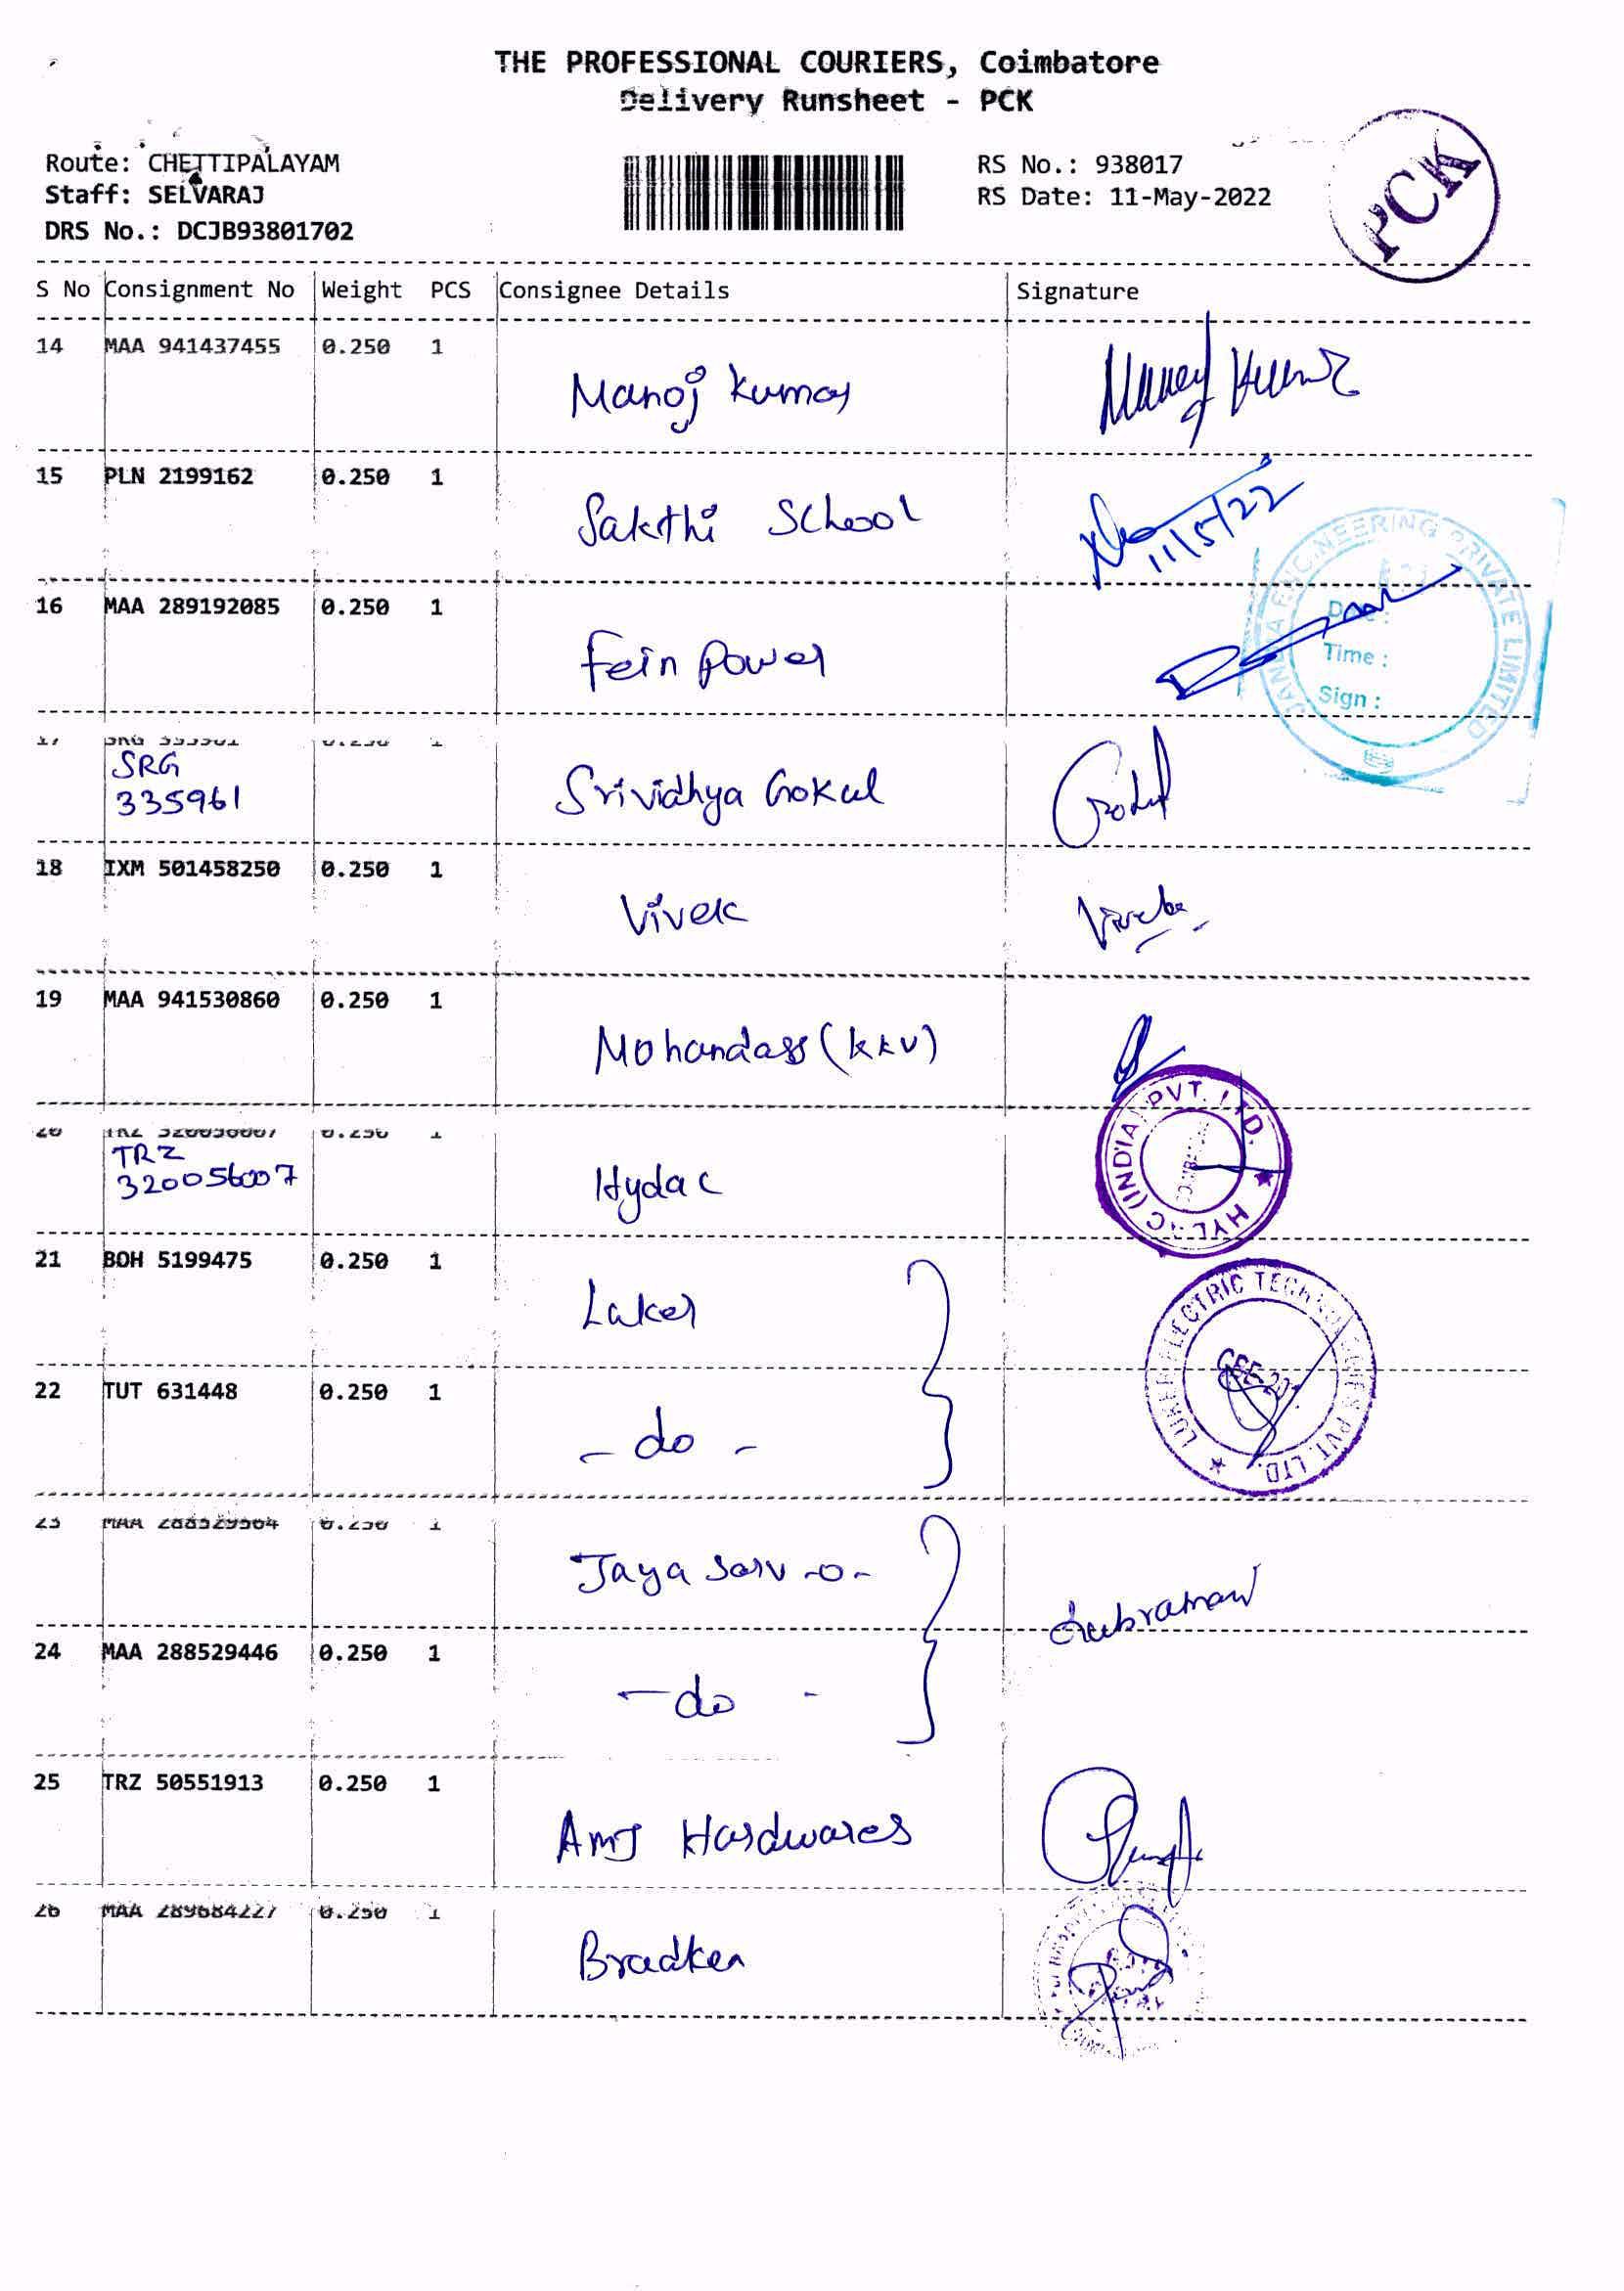 THE PROFESSIONAL COURIERS, Coimbatore
Delivery Runsheet - PCK
Route: CHETTIPALAYAM
Staff: SELVARAJ
DRS No.: DCJB93801702
RS No.: 938017
RS Date: 11-May-2022
PCK
S No Consignment No Weight PCS Consignee Details Signature
14 MAA 941437455 0.250 1 Manoj Kumar
15 PLN 2199162 0.250 1 Sakthi School 11/5/22
16 MAA 289192085 0.250 1 Fein Power
ENGINEERING PRIVATE LIMITED
Time :
Sign :
17 0.250 1
SRG
335961 Srividhya Gokul Gokul
18 IXM 501458250 0.250 1 Vivek
19 MAA 941530860 0.250 1 Mohandass (KKV)
20 0.250 1
TRZ
320056007 Hydac
HYDAC (INDIA) PVT. LTD.
21 BOH 5199475 0.250 1 Luker
22 TUT 631448 0.250 1 - do -
LUKER ELECTRIC TECHNOLOGIES PVT. LTD.
23 MAA 0.250 1 Jaya Sarv -o-
24 MAA 288529446 0.250 1 - do -
25 TRZ 50551913 0.250 1 AMJ Hardwares
26 MAA 289684227 0.250 1 Bradken